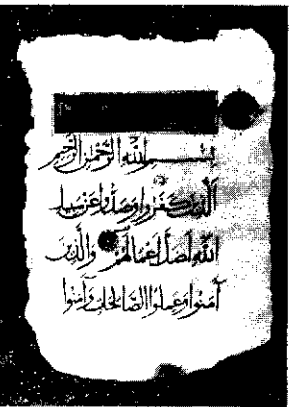 بسم الله الرحمن الرحيم
الذين كفروا وصدوا عن سبيل
الله أضل أعمالهم والذين
آمنوا وعملوا الصالحات وآمنوا